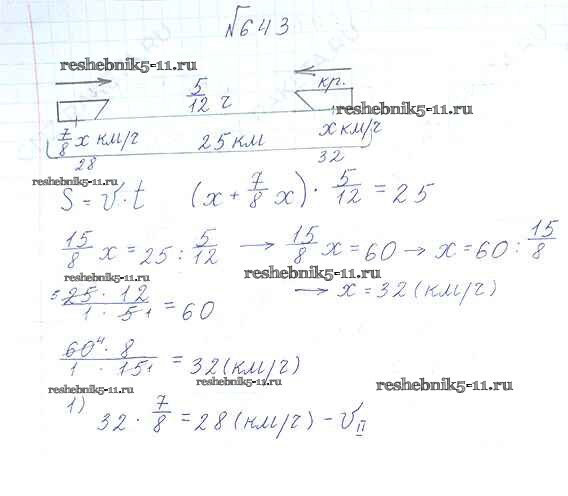 №643
reshebnik5-11.ru
5/12 ч
кр.
reshebnik5-11.ru
7/8 x км/ч 25 км x км/ч
28 32
reshebnik5-11.ru
S = v · t (x + 7/8 x) · 5/12 = 25
15/8 x = 25 : 5/12 → 15/8 x = 60 → x = 60 : 15/8
reshebnik5-11.ru
25 · 12 / 1 · 5 1 = 60 → x = 32 (км/ч)
reshebnik5-11.ru
60 4 · 8 / 1 · 15 1 = 32 (км/ч)
reshebnik5-11.ru
reshebnik5-11.ru
1) 32 · 7/8 = 28 (км/ч) – v II